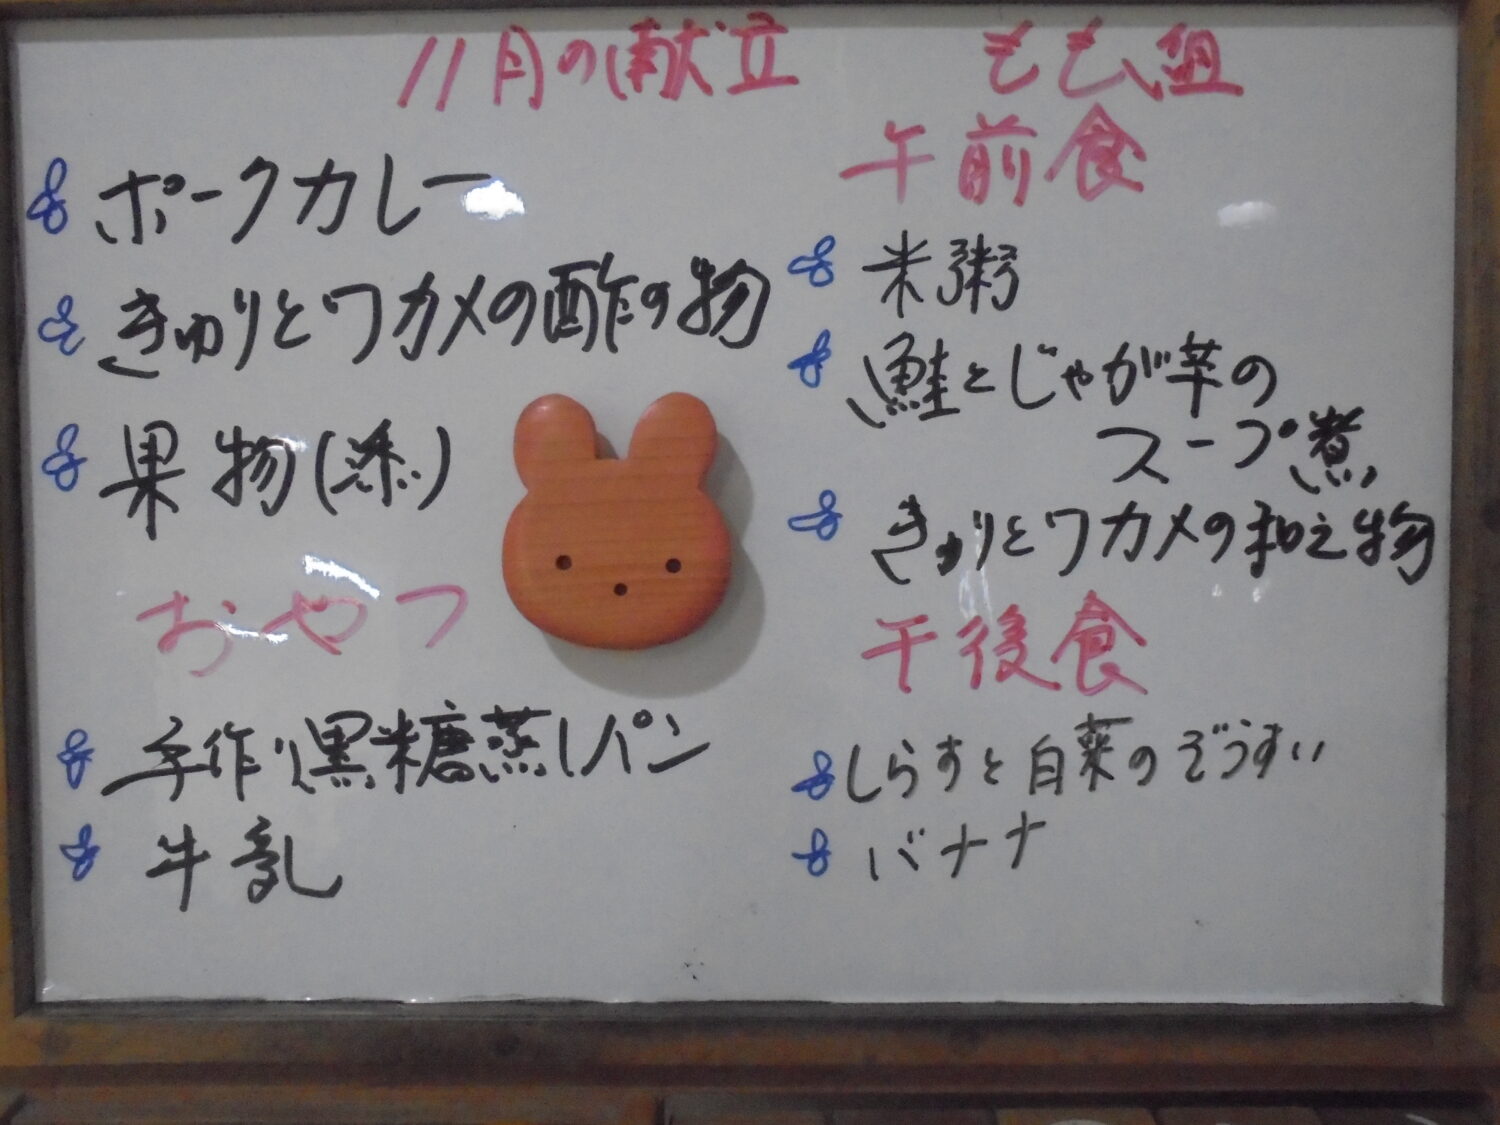 11月の献立
ポークカレー
きゅうりとワカメの酢の物
果物(柿)
おやつ
手作り黒糖蒸しパン
牛乳
もも組
午前食
米粥
鮭とじゃが芋の
スープ煮
きゅうりとワカメの和え物
午後食
しらすと白菜のぞうすい
バナナ